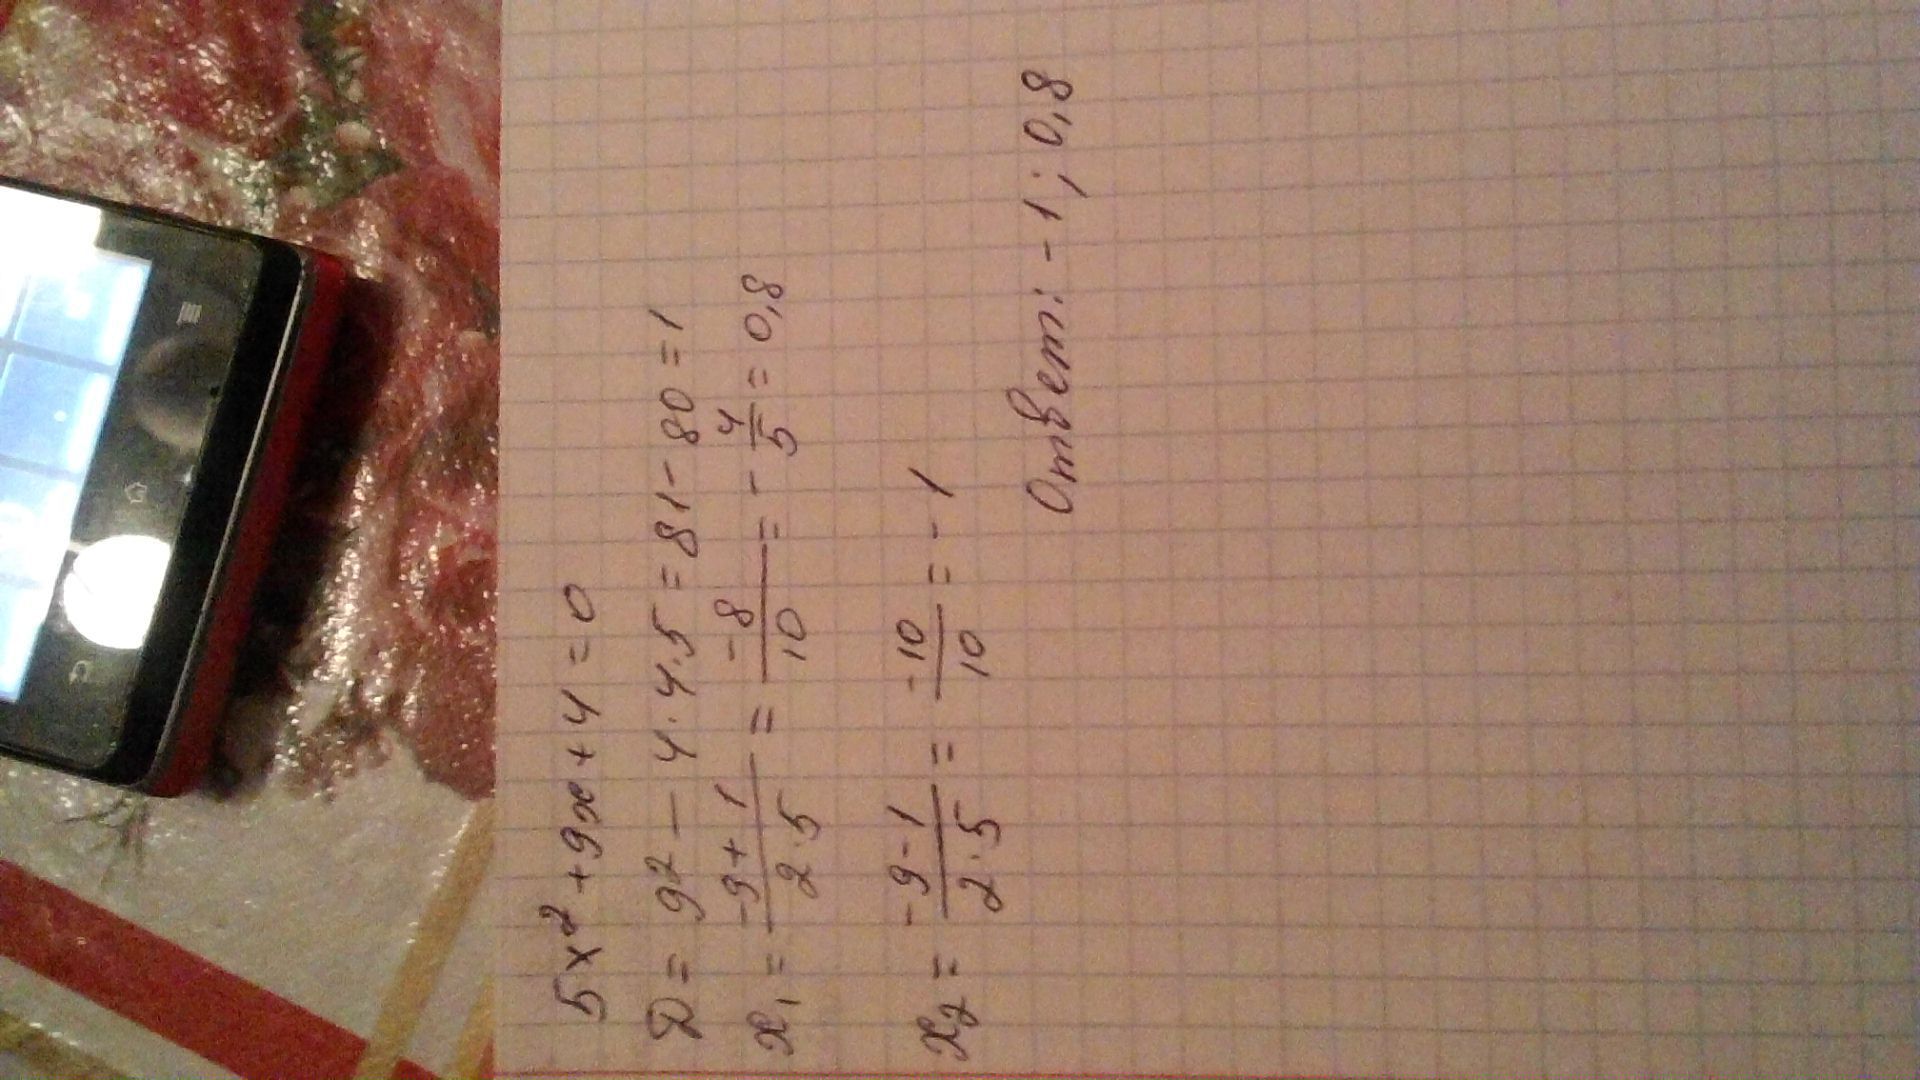 5x² + 9x + 4 = 0
D = 9² - 4·4·5 = 81 - 80 = 1
x₁ = (-9+1)/(2·5) = -8/10 = -4/5 = 0,8
x₂ = (-9-1)/(2·5) = -10/10 = -1
Ответ: -1; 0,8